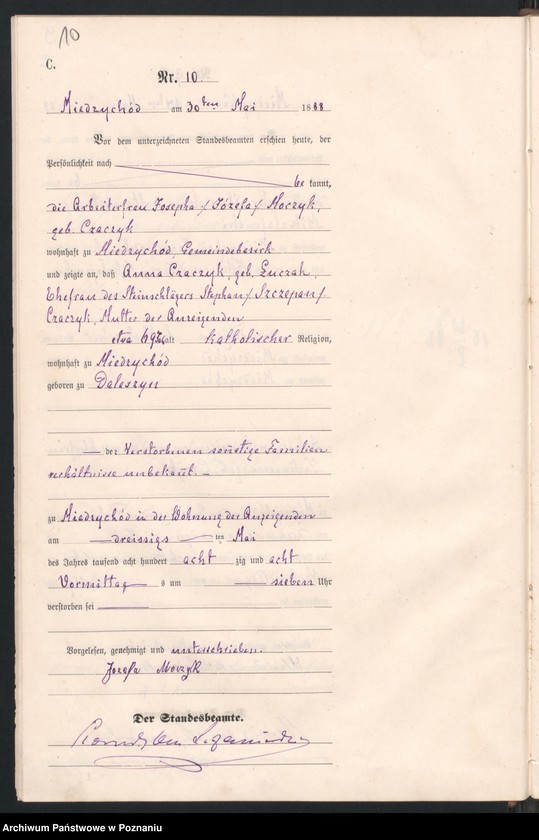 10
C.
Nr. 10.
Miedzychód am 30ten Mai 1888
Vor dem unterzeichneten Standesbeamten erschien heute, der
Persönlichkeit nach
be kannt,
die Arbeiterfrau Josepha /Józefa/ Moczyk,
geb. Czaczyk
wohnhaft zu Miedzychód, Gemeindebezirk
und zeigte an, daß Anna Czaczyk, geb.
Ehefrau des Steinschlägers Stephan /Szczepan/
Czaczyk, Mutter der Anzeigenden
etwa 69 Jahre alt katholischer Religion,
wohnhaft zu Miedzychód
geboren zu Daleszyn
der Verstorbenen sonstige Familien
verhältnisse unbekannt. –
zu Miedzychód in der Wohnung der Anzeigenden
am dreissigs ten Mai
des Jahres tausend acht hundert acht zig und acht
Vormittag s um sieben Uhr
verstorben sei
Vorgelesen, genehmigt und unterschrieben.
Jozefa Moczyk
Der Standesbeamte.
Archiwum Państwowe w Poznaniu